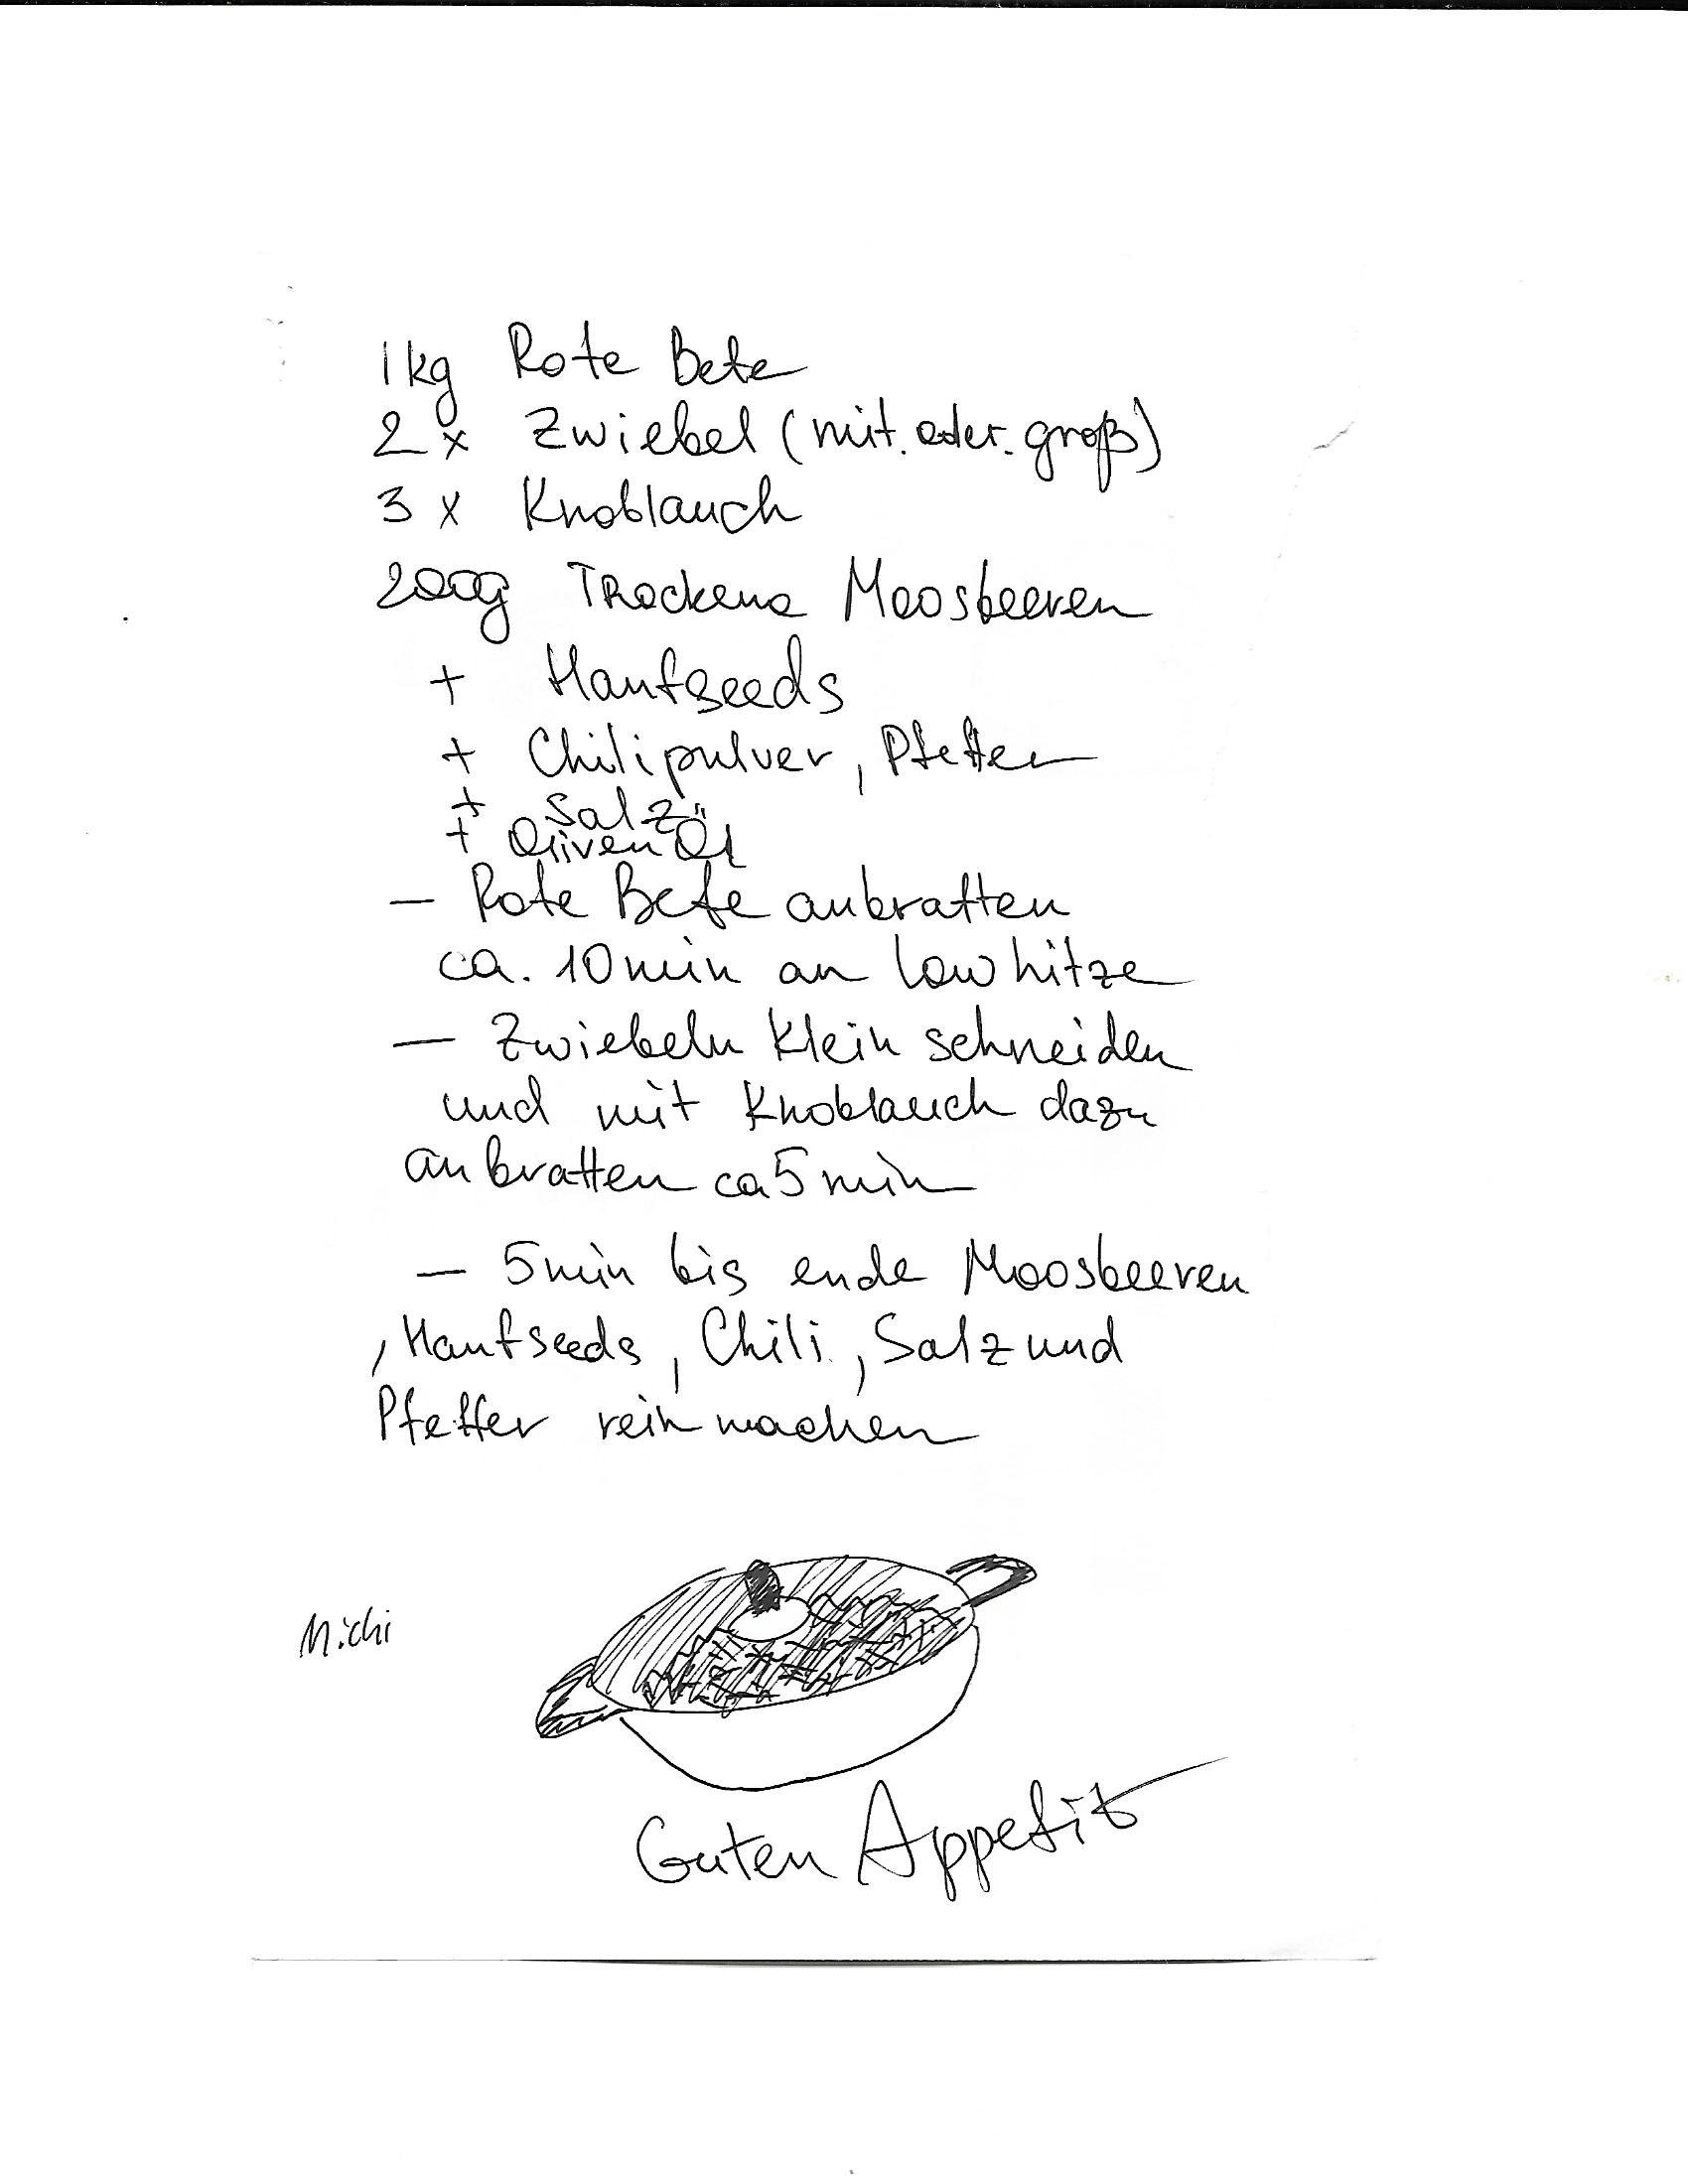 1kg Rote Bete
2x Zwiebel (mit. oder. groß)
3x Knoblauch
200g Trockene Moosbeeren
+ Hanfseeds
+ Chilipulver, Pfeffer
+ Salz
+ Oliven Öl
– Rote Bete anbratten
ca. 10min an low hitze
– Zwiebeln klein schneiden
und mit Knoblauch dazu
anbratten ca 5 min
– 5min bis ende Moosbeeren
, Hanfseeds, Chili, Salz und
Pfeffer rein machen
Michi
Guten Appetit